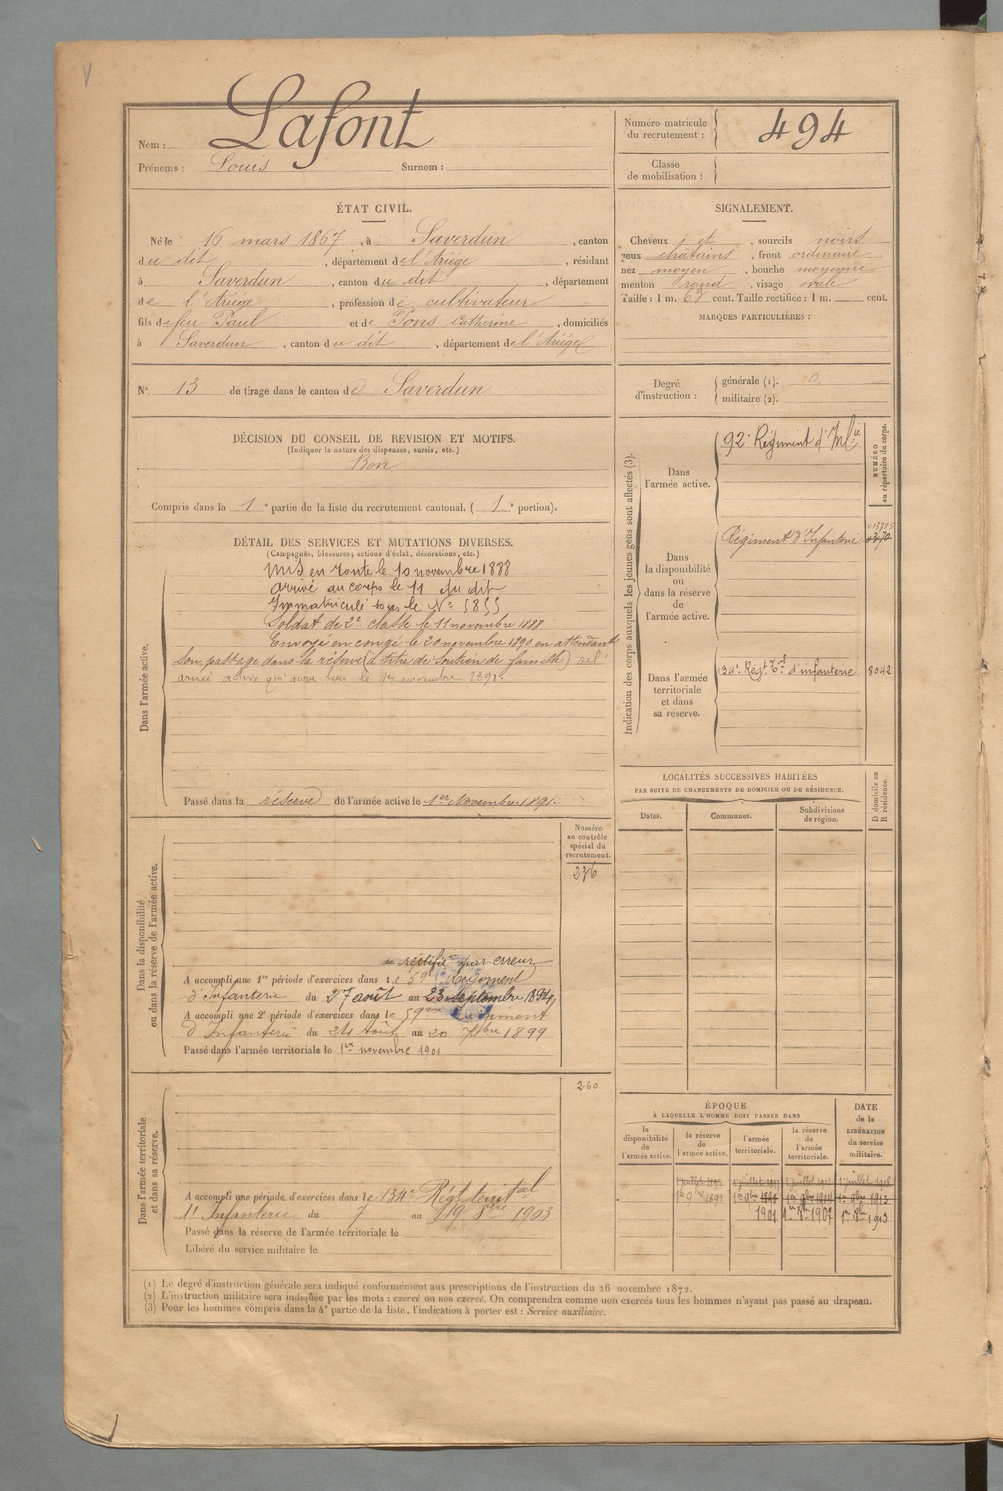 Nom : Lafont
Prénoms : Louis Surnom :
Numéro matricule du recrutement : 494
Classe de mobilisation :
ÉTAT CIVIL.
Né le 16 mars 1867, à Saverdun, canton
du dit, département de l'Ariége, résidant
à Saverdun, canton du dit, département
de l'Ariége, profession de cultivateur
fils de feu Paul et de Pons Catherine, domiciliés
à Saverdun, canton du dit, département de l'Ariége
SIGNALEMENT.
Cheveux et, sourcils noirs
yeux chatains, front ordinaire
nez moyen, bouche moyenne
menton rond, visage ovale
Taille : 1 m. cent. Taille rectifiée : 1 m. cent.
MARQUES PARTICULIÈRES :
N° 13 de tirage dans le canton de Saverdun
Degré d'instruction :
générale (1). 0
militaire (2).
DÉCISION DU CONSEIL DE REVISION ET MOTIFS.
(Indiquer la nature des dispenses, sursis, etc.)
Bon
Compris dans la 1e partie de la liste du recrutement cantonal. ( 1e portion).
DÉTAIL DES SERVICES ET MUTATIONS DIVERSES.
(Campagnes, blessures, actions d'éclat, décorations, etc.)
Dans l'armée active.
Mis en route le 10 novembre 1888
arrivé au corps le 11 du dit
Immatriculé sous le N° 5855
Soldat de 2e classe le 11 novembre 1888
Envoyé en congé le 20 novembre 1890 en attendant
son passage dans la réserve (à titre de soutien de famille) de l'
armée active qui aura lieu le 1er novembre 1891.
Passé dans la réserve de l'armée active le 1er Novembre 1891.
Indication des corps auxquels les jeunes gens sont affectés (3).
NUMÉRO au répertoire du corps.
Dans l'armée active.
92e Régiment d'Infie
Dans la disponibilité ou dans la réserve de l'armée active.
Régiment d'Infanterie
Dans l'armée territoriale et dans sa réserve.
134e Regt Tal d'infanterie 8042
LOCALITÉS SUCCESSIVES HABITÉES
PAR SUITE DE CHANGEMENTS DE DOMICILE OU DE RÉSIDENCE.
Dates. Communes. Subdivisions de région.
D domicile ou R résidence.
Dans la disponibilité ou dans la réserve de l'armée active.
Numéro au contrôle spécial du recrutement.
236
rectifié par erreur
A accompli une 1re période d'exercices dans le 59e Régiment
d'Infanterie du 27 août au 23 septembre 1894
A accompli une 2e période d'exercices dans le 59eme Régiment
d'Infanterie du 24 Août au 20 7bre 1899
Passé dans l'armée territoriale le 1er novembre 1901
Dans l'armée territoriale et dans sa réserve.
260
A accompli une période d'exercices dans le 134e Régt territal
d'Infanterie du 7 au 19 8bre 1903
Passé dans la réserve de l'armée territoriale le
Libéré du service militaire le
ÉPOQUE
À LAQUELLE L'HOMME DOIT PASSER DANS
DATE de la LIBÉRATION du service militaire.
la disponibilité de l'armée active.
la réserve de l'armée active.
l'armée territoriale.
la réserve de l'armée territoriale.
1er 9bre 1891
1901 1er 8bre 1907 1er 8bre 1913
(1) Le degré d'instruction générale sera indiqué conformément aux prescriptions de l'instruction du 26 novembre 1872.
(2) L'instruction militaire sera indiquée par les mots : exercé ou non exercé. On comprendra comme non exercés tous les hommes n'ayant pas passé au drapeau.
(3) Pour les hommes compris dans la 4e partie de la liste, l'indication à porter est : Service auxiliaire.